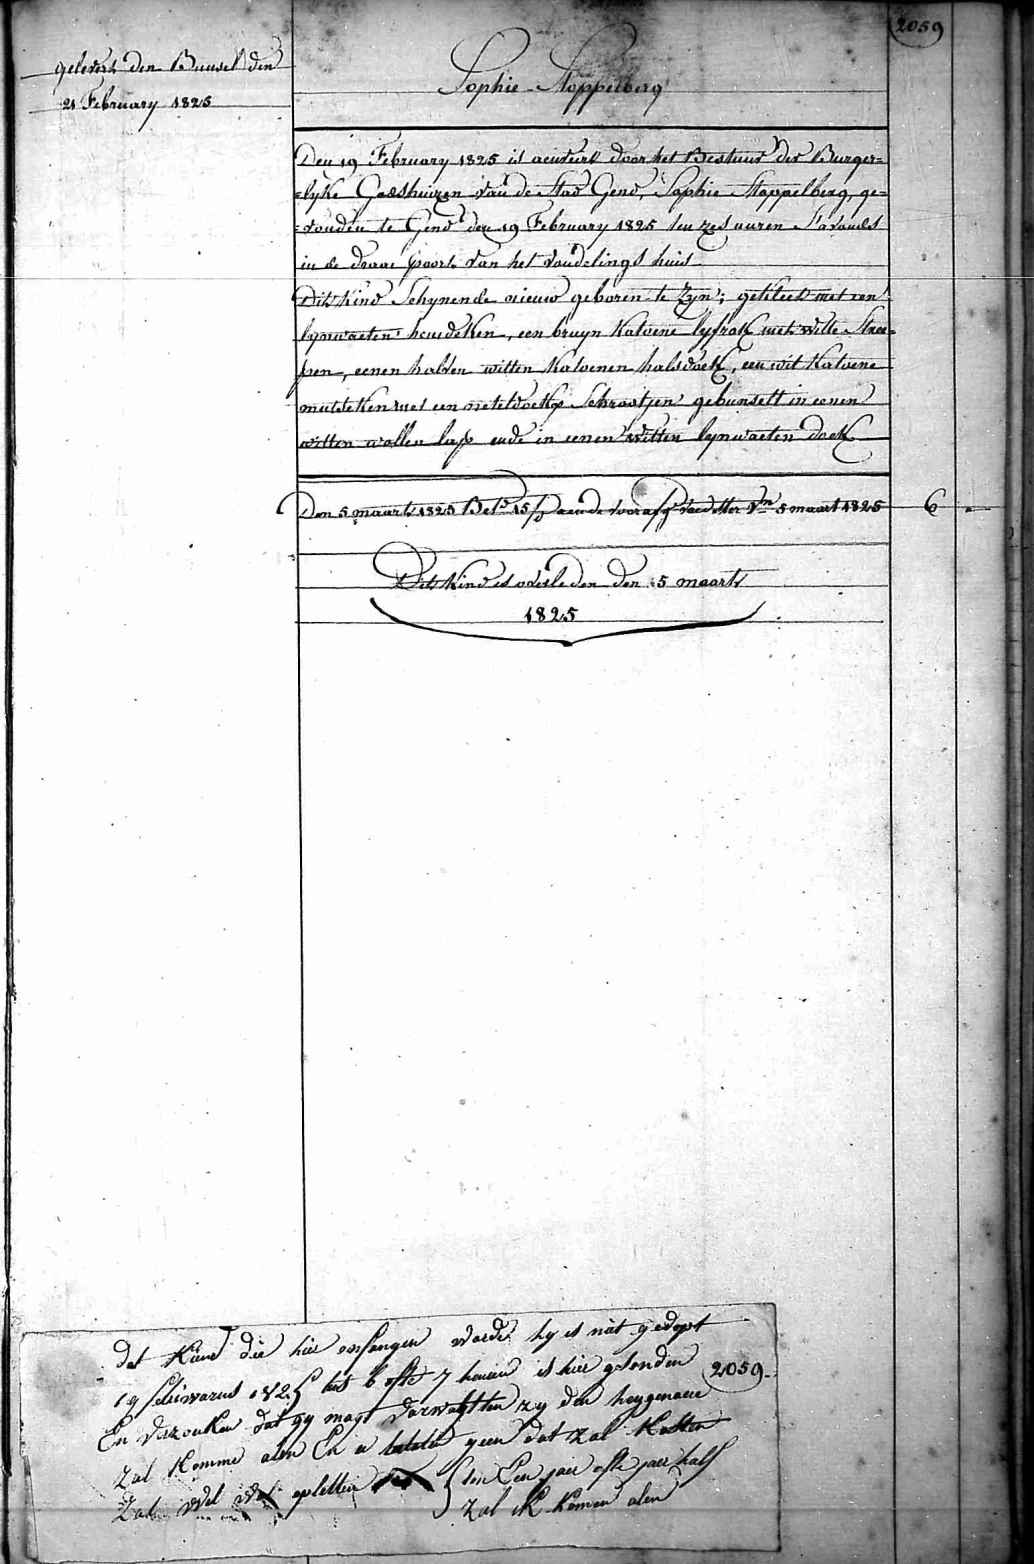 2059
gelevert den Buusel den
21 February 1825
Sophie Stoppelberg
Den 19 February 1825 is aenveirt door het Bestuur der Burger=
=lyke Godshuizen van de Stad Gend, Sophie Stoppelberg, ge=
=vonden te Gend den 19 February 1825 ten zes uuren S'avonds
in de draae poort van het vondelings huis
Dit Kind Schynende nieuw geboren te Zyn; gekleet met een
lynwaeten hemdeken, een bruyn Katoene lyfrok met witte Stree=
pen, eenen halven witten Katoenen halsdoek, een wit Katoene
mutseken met een neteldoekx Schrootjen gebunselt in eenen
witten wollen lap ende in eenen witten lynwaeten doek
Den 5 maart 1825 Bet. 15 aende voorasz voedster 5 maart 1825 6
Dit Kind is overleden den 5 maart
1825
dat Kind die hier onfangen worde hy is niet gedopt
19 febiwarus 1825 tus 6 ofte 7 heuren is hier gesonden
2059
En verzouken dat gy magt verwagtten zy die heygenaer
zal Komme alen En u betalen geen dat zal Kosten
Zal wel opletten ten Een jaer ofte jaer half
zal ik komen alen